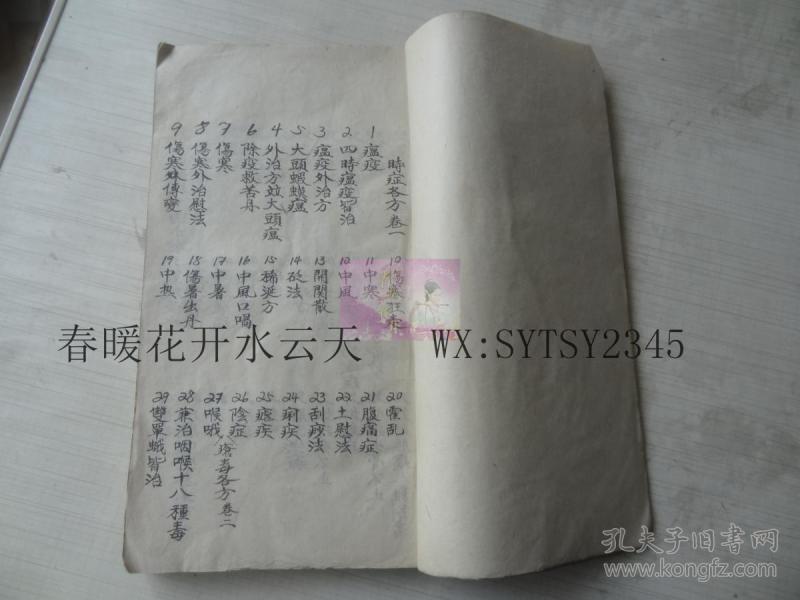 時症各方卷一
1 瘟疫
2 四時瘟疫皆治
3 瘟疫外治方
5 大頭蝦蟆瘟
4 外治方並大頭瘟
6 除疫救苦丹
7 傷寒
8 傷寒外治慰法
9 傷寒妹傳变
10 傷寒狂走
11 中寒
12 中風
13 開関散
14 砭法
15 稀涎方
16 中風口喎
17 中暑
18 傷暑虫丹
19 中热
20 霍乱
21 腹痛症
22 土慰法
23 刮痧法
24 痢疾
25 瘧疾
26 陰症
瘡毒各方卷二
27 喉哦
28 兼治咽喉十八種毒
29 雙單蛾皆治
春暖花开水云天 WX:SYTSY2345
孔夫子旧书网
www.kongfz.com